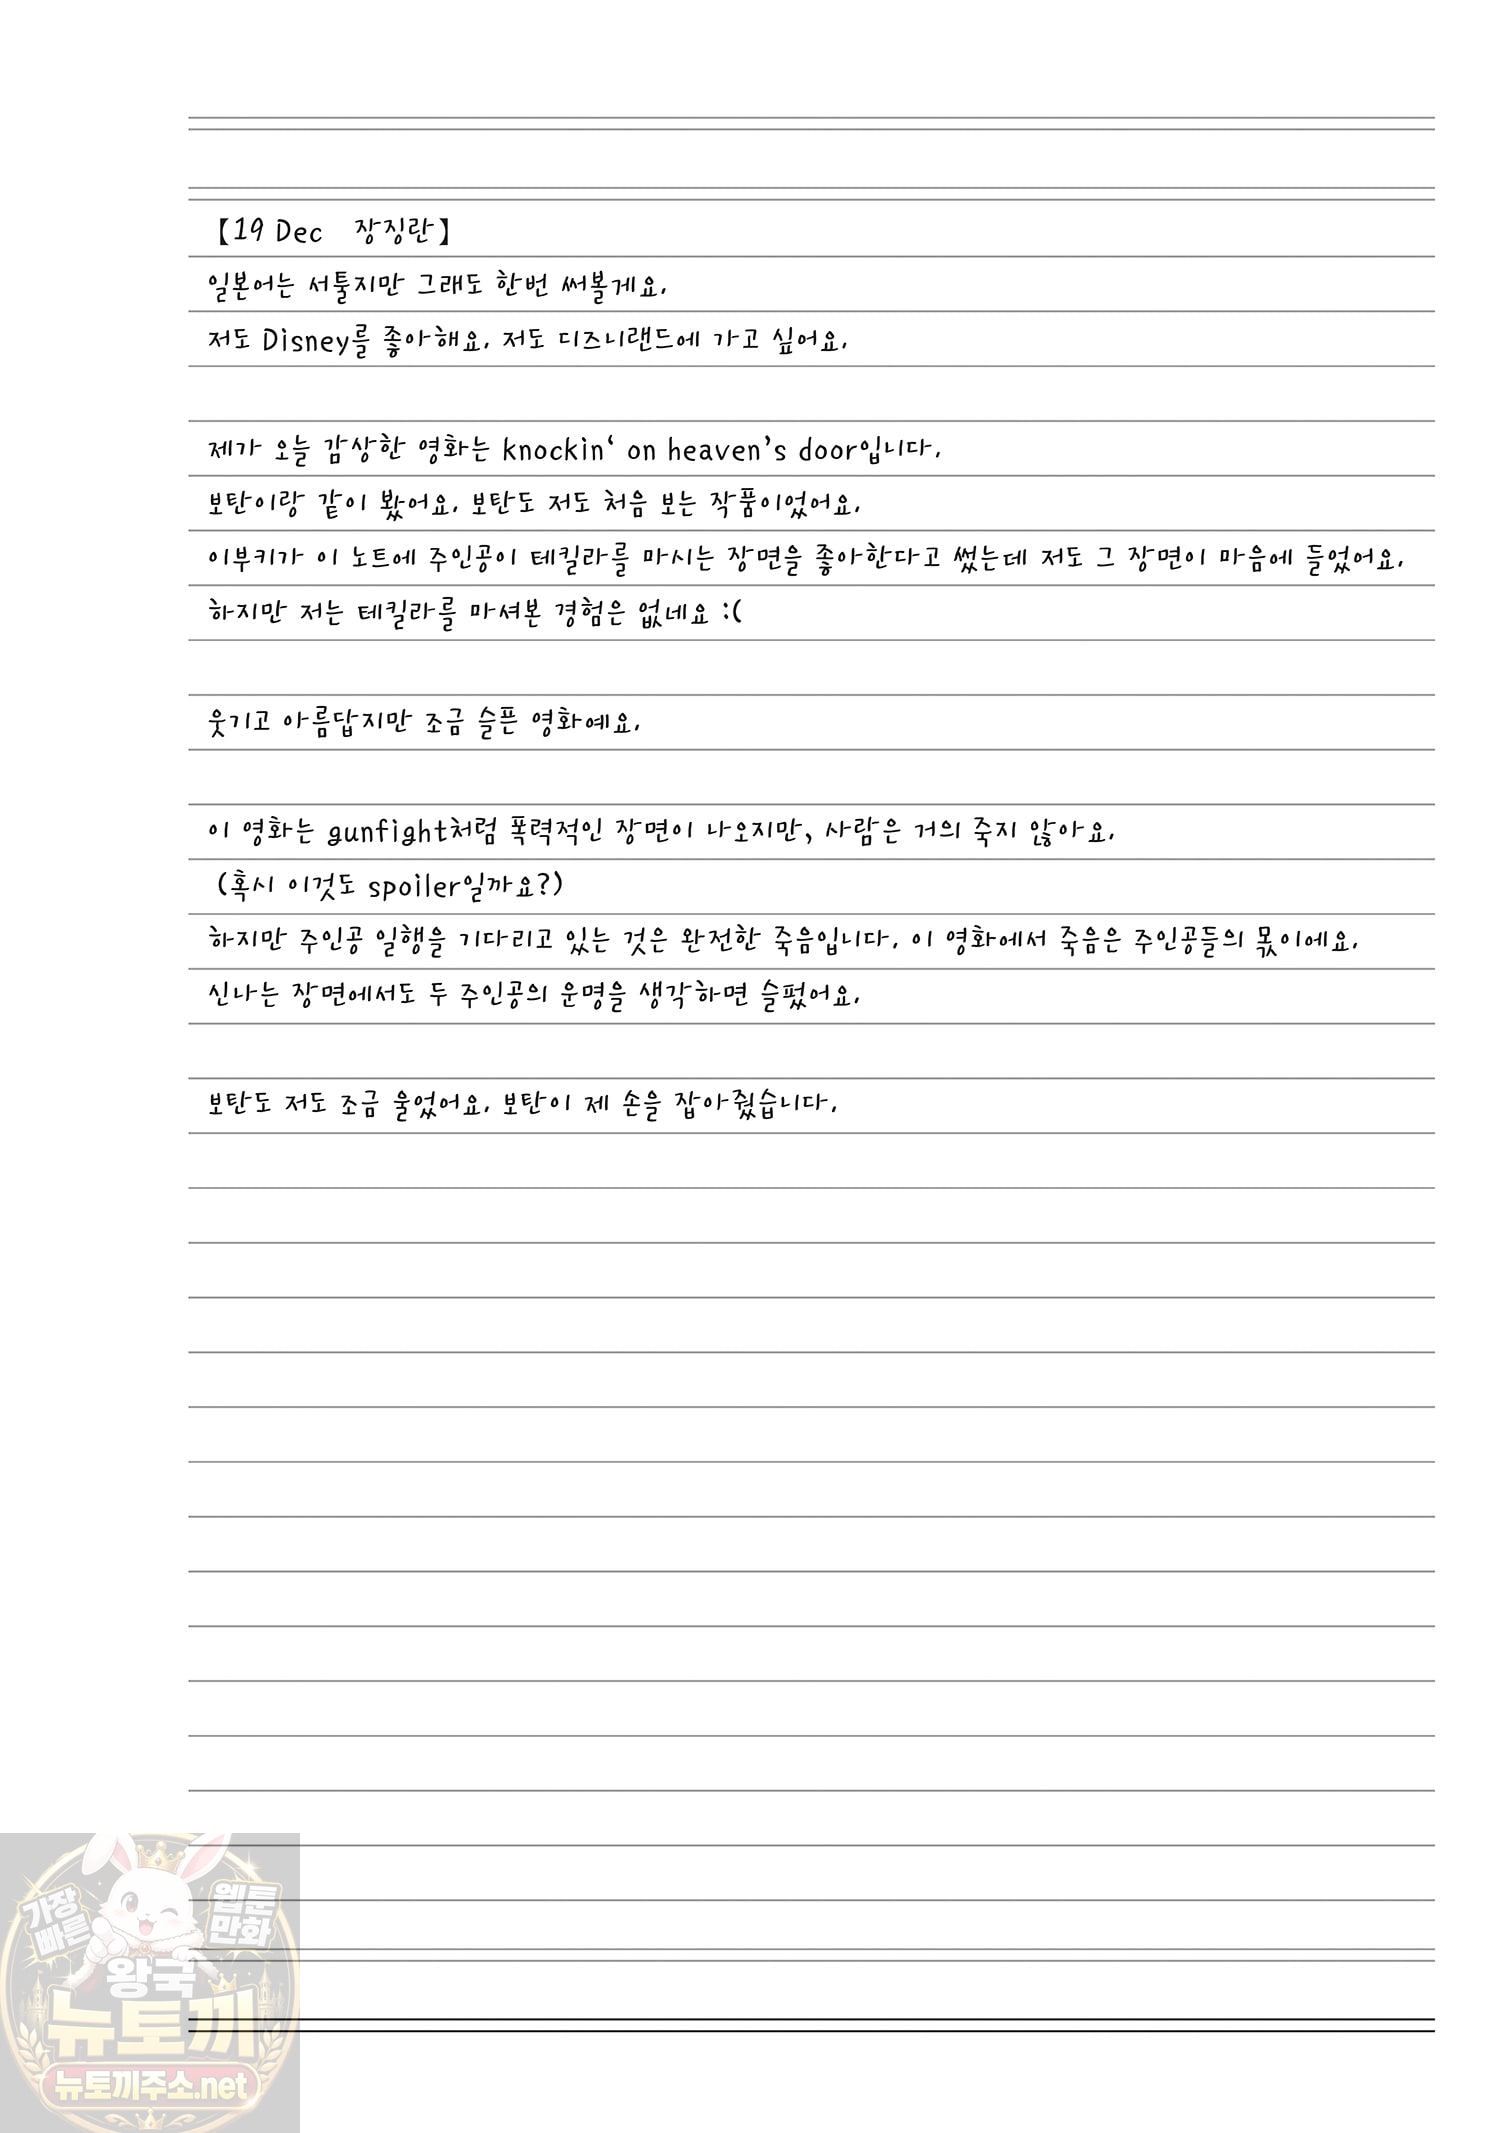 【19 Dec 장징란】
일본어는 서툴지만 그래도 한번 써볼게요.
저도 Disney를 좋아해요. 저도 디즈니랜드에 가고 싶어요.
제가 오늘 감상한 영화는 knockin‘ on heaven’s door입니다.
보탄이랑 같이 봤어요. 보탄도 저도 처음 보는 작품이었어요.
이부키가 이 노트에 주인공이 테킬라를 마시는 장면을 좋아한다고 썼는데 저도 그 장면이 마음에 들었어요.
하지만 저는 테킬라를 마셔본 경험은 없네요 :(
웃기고 아름답지만 조금 슬픈 영화예요.
이 영화는 gunfight처럼 폭력적인 장면이 나오지만, 사람은 거의 죽지 않아요.
(혹시 이것도 spoiler일까요?)
하지만 주인공 일행을 기다리고 있는 것은 완전한 죽음입니다. 이 영화에서 죽음은 주인공들의 몫이에요.
신나는 장면에서도 두 주인공의 운명을 생각하면 슬펐어요.
보탄도 저도 조금 울었어요. 보탄이 제 손을 잡아줬습니다.
가장 빠른
웹툰 만화
왕국
뉴토끼
뉴토끼주소.net